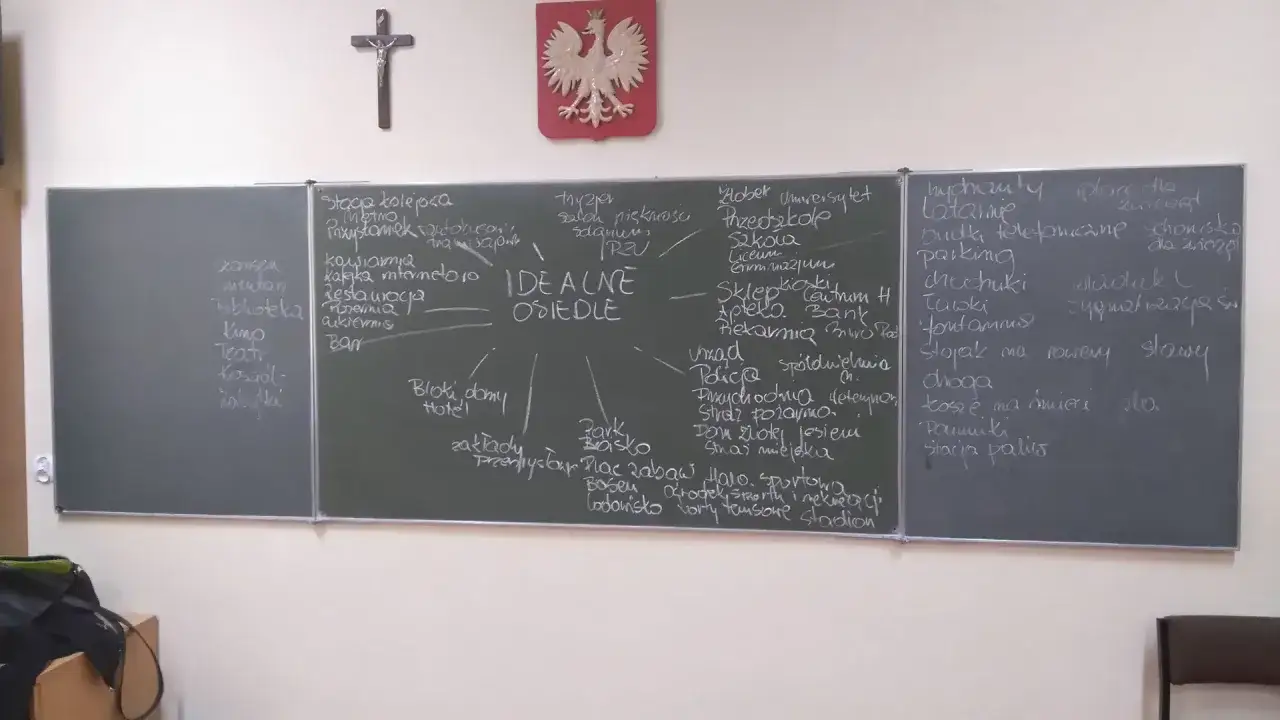 muzeum
biblioteka
kino
Teatr
Kościół
zabytki
Stacja kolejowa
metro
Przystanek autobusowy
tramwajowy
kawiarnia
kafejka internetowa
restauracja
pizzernia
cukiernia
Bar
fryzjer
salon piękności
solarium
IDEALNE
OSIEDLE
Bloki, domy
Hotel
zakłady
przemysłowe
żłobek Uniwersytet
Przedszkole
Szkoła
Liceum
Gimnazjum
kioski
Sklep Centrum H
Apteka Bank
Piekarnia Biuro
urząd spółdzielnia
Policja m.
Przychodnia weteryna
Straż pożarna
Dom złotej jesieni
Straż miejska
Park
Boisko
Plac zabaw Hala sportowa
Basen Ośrodek sportu i rekreacji
Lodowisko korty tenisowe Stadion
hydranty place dla
zwierząt
Latarnie
budki telefoniczne schronisko
dla zwierząt
parking
chodniki
Ławki sygnalizacja św
fontanna
stojak na rowery stawy
droga
kosze na śmieci
Pomniki
stacja paliw